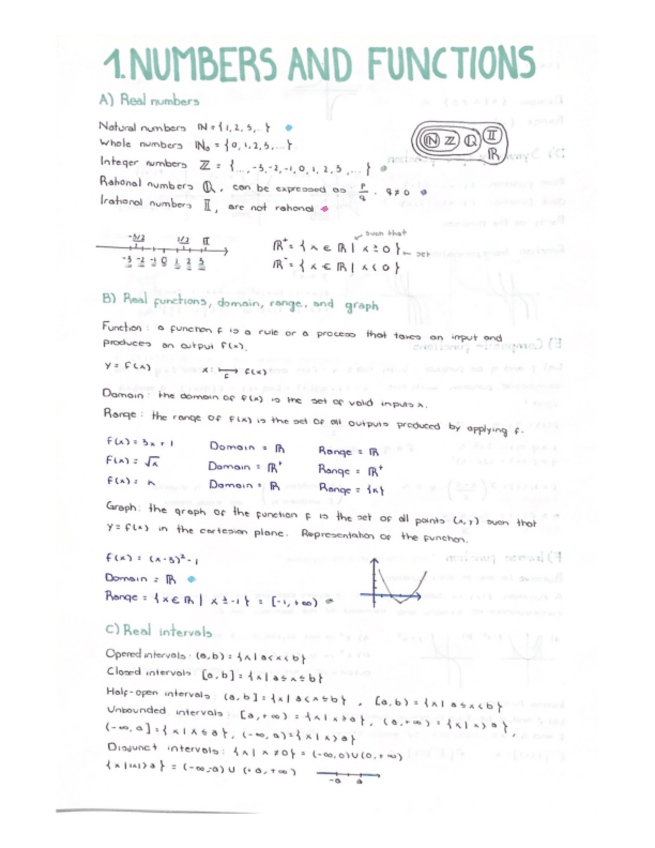 1. NUMBERS AND FUNCTIONS
A) Real numbers
Natural numbers ℕ = {1, 2, 3, ...}
Whole numbers ℕ₀ = {0, 1, 2, 3, ...}
Integer numbers ℤ = {..., -3, -2, -1, 0, 1, 2, 3, ...}
Rational numbers ℚ, can be expressed as p/q, q≠0
Irational numbers 𝕀, are not rational
ℕ ℤ ℚ 𝕀 ℝ
-5/2 1/2 π
-3 -2 -1 0 1 2 3
such that
ℝ⁺ = {x ∈ ℝ | x ≥ 0} set
ℝ⁻ = {x ∈ ℝ | x < 0}
B) Real functions, domain, range, and graph
Function: a function f is a rule or a process that takes an input and
produces an output f(x).
y = f(x) x ⟼ f(x)
f
Domain: the domain of f(x) is the set of valid inputs x.
Range: the range of f(x) is the set of all outputs produced by applying f.
f(x) = 3x + 1 Domain = ℝ Range = ℝ
f(x) = √x Domain = ℝ⁺ Range = ℝ⁺
f(x) = k Domain = ℝ Range = {k}
Graph: the graph of the function f is the set of all points (x, y) such that
y = f(x) in the cartesian plane. Representation of the function.
f(x) = (x-3)² - 1
Domain = ℝ
Range = {x ∈ ℝ | x ≥ -1} = [-1, +∞)
C) Real intervals
Opened intervals: (a, b) = {x | a < x < b}
Closed intervals: [a, b] = {x | a ≤ x ≤ b}
Half-open intervals: (a, b] = {x | a < x ≤ b}, [a, b) = {x | a ≤ x < b}
Unbounded intervals: [a, +∞) = {x | x ≥ a}, (a, +∞) = {x | x > a},
(-∞, a] = {x | x ≤ a}, (-∞, a) = {x | x > a}
Disjunct intervals: {x | x ≠ 0} = (-∞, 0) ∪ (0, +∞)
{x | |x| > a} = (-∞, -a) ∪ (+a, +∞)
-a a